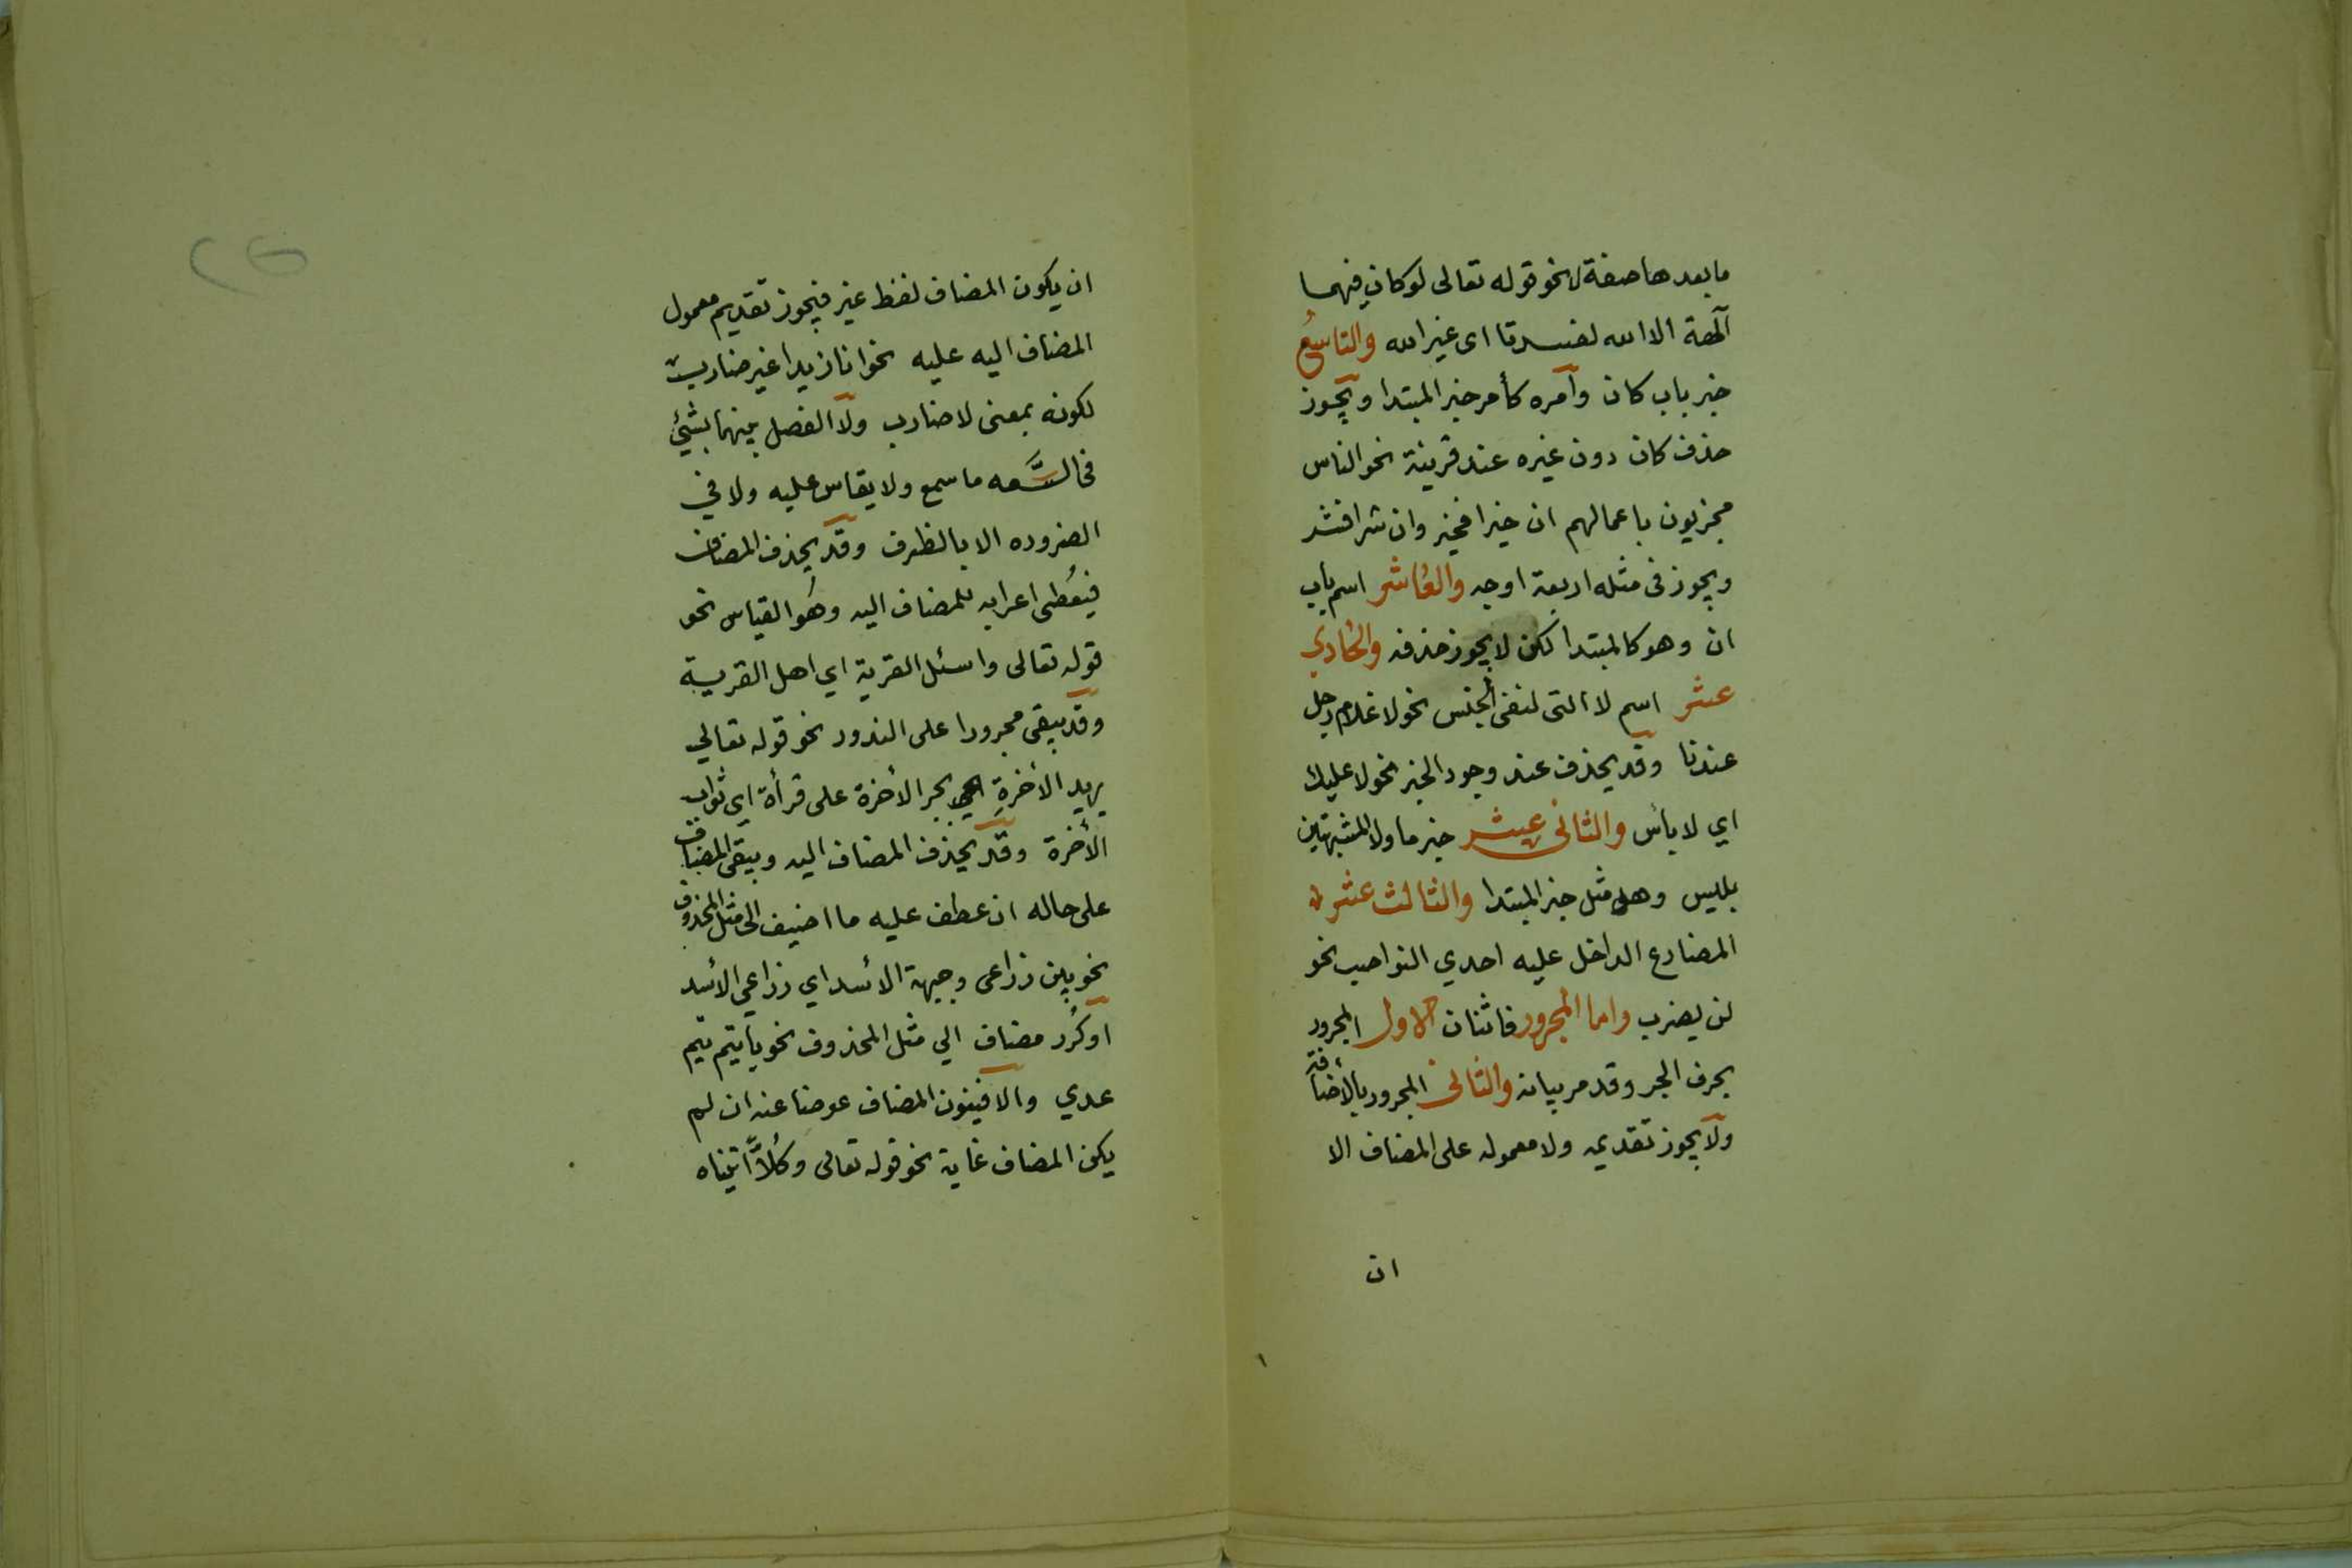 ما بعدها صفة نحو قوله تعالى لو كان فيهما
آلهة الا الله لفسدتا اى غير الله والتاسع
خبر باب كان وآمره كأمر خبر المبتدا ويجوز
حذف كان دون غيره عند قرينة نحو الناس
مجزيون باعمالهم ان خيرا فخير وان شرا فشر
ويجوز فى مثله اربعة اوجه والعاشر اسم باب
ان وهو كالمبتدا لكن لا يجوز حذفه والحادي
عشر اسم لا التى لنفى الجنس نحو لا غلام رجل
عندنا وقد يحذف عند وجود الخبر نحو لا عليك
اي لا بأس والثانى عشر خبر ما ولا المشبهتين
بليس وهو مثل خبر المبتدا والثالث عشر
المضارع الداخل عليه احدي النواصب نحو
لن يضرب واما المجرور فاثنان الاول المجرور
بحرف الجر وقد مر بيانه والثانى المجرور بالأضافة
ولا يجوز تقديمه ولا معموله على المضاف الا
ان
ان يكون المضاف لفظ غير فيجوز تقديم معمول
المضاف اليه عليه نحو انا زيدا غير ضارب
لكونه بمعنى لا ضارب ولا الفصل بينهما بشئ
فى السَّعه ما سمع ولا يقاس عليه ولا في
الضروره الا بالظرف وقد يحذف المضاف
فيُعطى اعرابه للمضاف اليه وهُو القياس نحو
قوله تعالى واسئل القرية اي اهل القرية
وقد يبقى مجرورا على الندور نحو قوله تعالي
يريد الأخرةِ بجر الأخرة على قرأة اي ثواب
الأخرة وقد يحذف المضاف اليه ويبقى المضاف
على حاله ان عطف عليه ما اضيف الى مثل المحذوف
نحو بين ذراعى وجبهة الأسد اي ذراعي الأسد
اوكُرر مضاف الي مثل المحذوف نحو يا تيم تيم
عدي والا فينون المضاف عوضا عنه ان لم
يكن المضاف غاية نحو قوله تعالى وكُلاًّ اتيناه